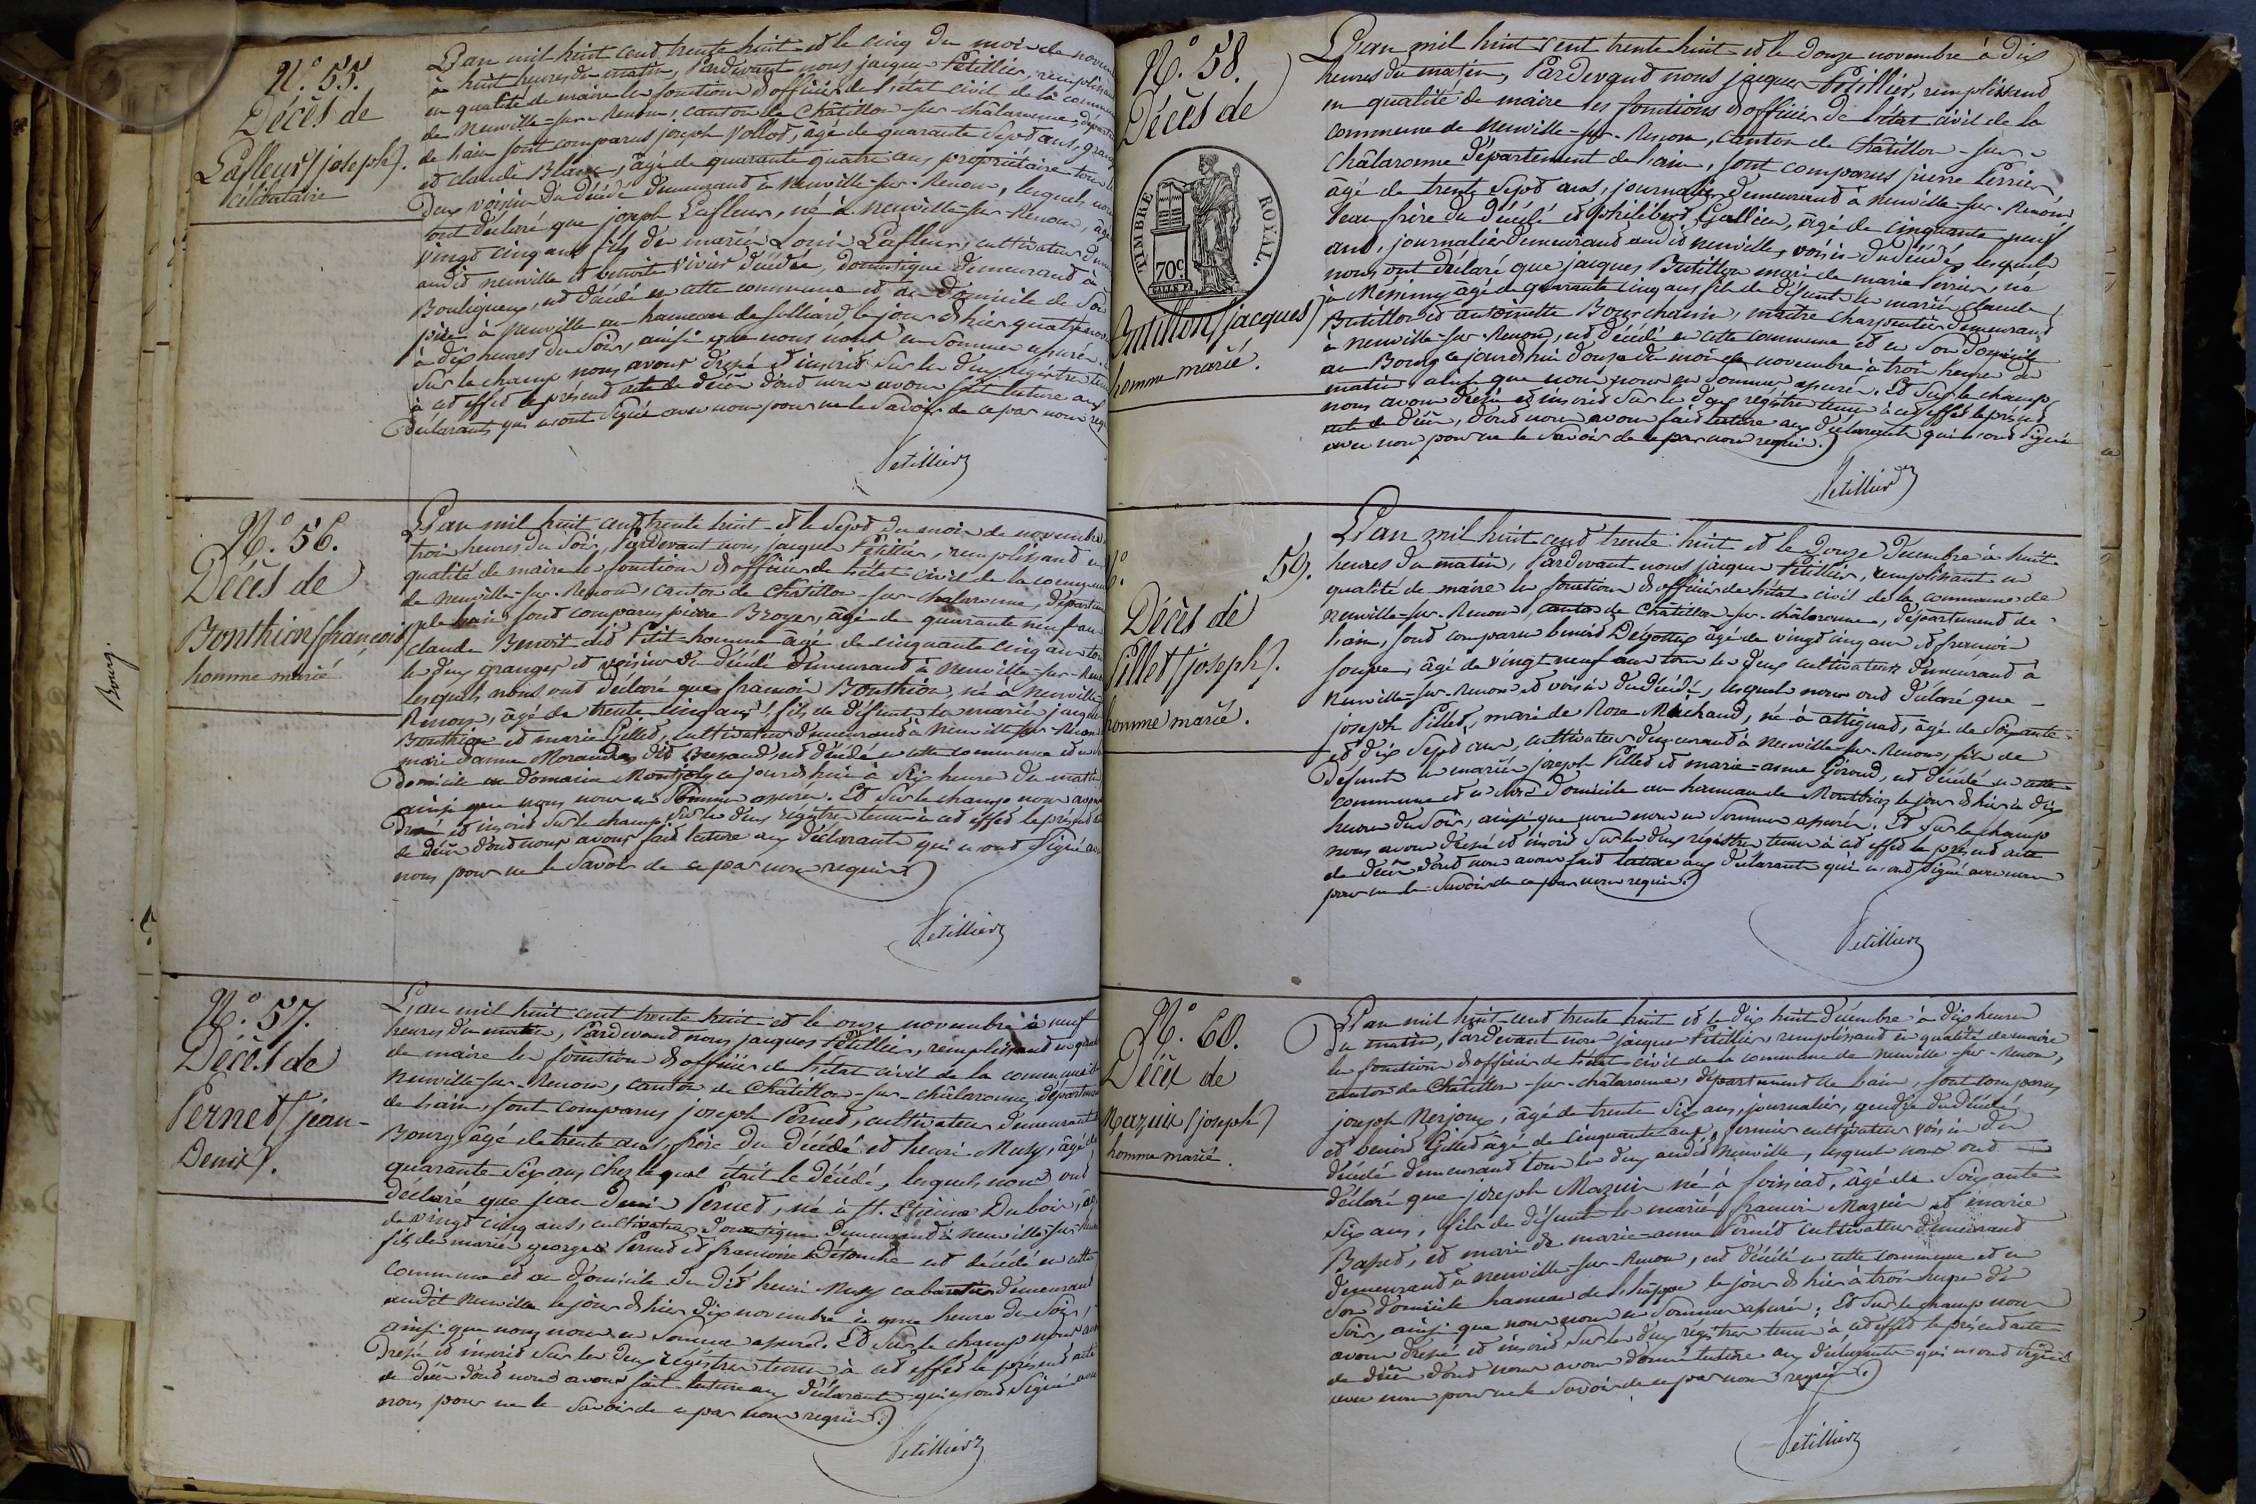 N.° 55.
Décès de
Lafleur (joseph).
célibataire
L'an mil huit cent trente huit et le cinq du mois de novem
à huit heures du matin, Pardevant nous jacques Petillier, remplissant
en qualité de maire les fonctions d'officier de l'état civil de la commune
de Neuville-sur-Renom, canton de Châtillon-sur-châlaronne, départem
de l'ain sont comparus joseph Vollod, âgé de quarante sept ans, grang
et claude Blanc, âgé de quarante quatre ans propriétaire tous
deux voisins du décédé demeurant à Neuville-sur-Renom, lesquels nous
ont déclaré que joseph Lafleur, né à Neuville-sur-Renom, âgé
vingt cinq ans fils des mariés Louis Lafleur, cultivateur dem
audit neuville et benoite Vivier décédée, domestique demeurant à
Bouligneux, est décédé en cette commune et au domicile de son
père à Neuville au hameau de le jour d'hier quatre nov
à dix heures du soir, ainsi que nous nous en sommes assurés.
Sur le champ nous avons dressé et inscrit sur les deux registres tenus
à cet effet le présent acte de décès dont nous avons fait lecture aux
déclarants qui n'ont signé avec nous pour ne le savoir de ce par nous req
Petillier
N.° 56.
Décès de
Bonthion (françois)
homme marié
L'an mil huit cent trente huit et le sept du mois de novembre
trois heures du soir, Pardevant nous jacques Petillier, remplissant en
qualité de maire les fonctions d'officier de l'état civil de la commune
de Neuville-sur-Renom, canton de Châtillon-sur-chalaronne, départem
de l'ain sont comparus pierre Broyer, âgé de quarante neuf ans
claude Benoit dit Petit-homme âgé de cinquante cinq ans tous
les deux grangers et voisins du décédé demeurant à Neuville-sur-Renom
lesquels nous ont déclaré que françois Bonthion, né à Neuville-
Renom, âgé de trente cinq ans, fils de défunts les mariés jacques
Bonthion et marie Gillet, cultivateur demeurant à Neuville-sur-Renom
mari d'anne dit est décédé en cette commune et en
domicile au domaine Montjoly ce jourd'hui à six heures du matin
ainsi que nous nous en sommes assurés. Et sur le champ nous avons
dressé et inscrit sur le champ sur les deux registres tenus à cet effet le présent
de décès dont nous avons fait lecture aux déclarants qui n'ont signé avec
nous pour ne le savoir de ce par nous requis.
Petillier
N.° 57.
Décès de
Pernet (jean-
Denis).
L'an mil huit cent trente huit et le onze novembre à neuf
heures du matin, Pardevant nous jacques Petillier, remplissant en qualité
de maire les fonctions d'officier de l'état civil de la commune de
Neuville-sur-Renom, canton de Châtillon-sur-châlaronne, départem
de l'ain, sont comparus joseph Pernet, cultivateur demeurant à
Bourg âgé de trente ans, frère du décédé et henri Muzy, âgé de
quarante six ans, chez lequel était le décédé, lesquels nous ont
déclaré que jean Denis Pernet, né à St. Etienne Dubois, âgé
de vingt cinq ans, cultivateur domestique demeurant à Neuville-sur-Renom
fils des mariés georges Pernet et françoise est décédé en cette
commune et au domicile du dit henri Muzy cabaretier demeurant
audit Neuville le jour d'hier dix novembre à onze heures du soir,
ainsi que nous nous en sommes assurés. Et sur le champ nous avons
dressé et inscrit sur les deux registres tenus à cet effet le présent acte
de décès dont nous avons fait lecture aux déclarants qui n'ont signé avec
nous pour ne le savoir de ce par nous requis.
Petillier
Bourg.
N.° 58.
Décès de
TIMBRE ROYAL.
70c
Butillon (jacques)
homme marié.
L'an mil huit cent trente huit et le douze novembre à dix
heures du matin, Pardevant nous jacques Petillier, remplissant
en qualité de maire les fonctions d'officier de l'état civil de la
commune de Neuville-sur-Renom, canton de Châtillon-sur-
châlaronne département de l'ain, sont comparus pierre Perrier,
âgé de trente sept ans, journalier demeurant à Neuville-sur-Renom
beau-frère du décédé et philibert Gallien, âgé de cinquante neuf
ans, journalier demeurant audit neuville, voisin du décédé, lesquels
nous ont déclaré que jacques Butillon mari de marie Perrier, né
à Mésimy âgé de quarante cinq ans fils de défunts les mariés claude
Butillon et antoinette Bourchanin, maître charpentier demeurant
à Neuville-sur-Renom, est décédé en cette commune et en son domicile
au Bourg ce jourd'hui douze du mois de novembre à trois heures du
matin ainsi que nous nous en sommes assurés. Et sur le champ
nous avons dressé et inscrit sur les deux registres tenus à cet effet le présent
acte de décès, dont nous avons fait lecture aux déclarants qui n'ont signé
avec nous pour ne le savoir de ce par nous requis.
Petillier
N.° 59.
Décès de
Pillet (joseph).
homme marié.
L'an mil huit cent trente huit et le douze décembre à huit
heures du matin, Pardevant nous jacques Petillier, remplissant en
qualité de maire les fonctions d'officier de l'état civil de la commune de
Neuville-sur-Renom, canton de Châtillon-sur-châlaronne, département de
l'ain, sont comparus benoit Desgottex âgé de vingt cinq ans et françois
Soupe, âgé de vingt neuf ans tous les deux cultivateurs demeurant à
Neuville-sur-Renom et voisins du décédé, lesquels nous ont déclaré que
joseph Pillet, mari de Rose Machand, né à attignat, âgé de soixante
et dix sept ans, cultivateur demeurant à Neuville-sur-Renom, fils de
défunts les mariés joseph Pillet et marie-anne Giroud, est décédé en cette
commune et en son domicile au hameau de le jour d'hier à dix
heures du soir, ainsi que nous nous en sommes assurés. Et sur le champ
nous avons dressé et inscrit sur les deux registres tenus à cet effet le présent acte
de décès dont nous avons fait lecture aux déclarants qui n'ont signé avec nous
pour ne le savoir de ce par nous requis.
Petillier
N.° 60.
Décès de
Mazuir (joseph)
homme marié.
L'an mil huit cent trente huit et le dix huit décembre à dix heures
du matin, Pardevant nous jacques Petillier, remplissant en qualité de maire
les fonctions d'officier de l'état civil de la commune de Neuville-sur-Renom,
canton de Châtillon-sur-châlaronne, département de l'ain, sont comparus
joseph Nerjoux, âgé de trente six ans, journalier, gendre du décédé
et benoit Gillet âgé de cinquante ans, fermier cultivateur voisin du
décédé demeurant tous les deux audit Neuville, lesquels nous ont
déclaré que joseph Mazuir né à foissiat, âgé de soixante
six ans, fils de défunts les mariés françois Mazuir et marie
Basset, et mari de marie-anne Pernet cultivateur demeurant
demeurant à Neuville-sur-Renom, est décédé en cette commune et en
son domicile hameau de le jour d'hier à trois heures du
soir, ainsi que nous nous en sommes assurés. Et sur le champ nous
avons dressé et inscrit sur les deux registres tenus à cet effet le présent acte
de décès dont nous avons donné lecture aux déclarants qui n'ont signé
avec nous pour ne le savoir de ce par nous requis.
Petillier